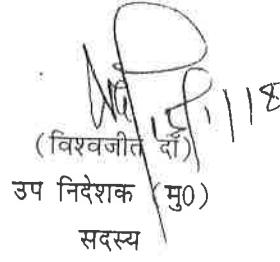 (विश्वजीत दाँ)
उप निदेशक (मु0)
सदस्य